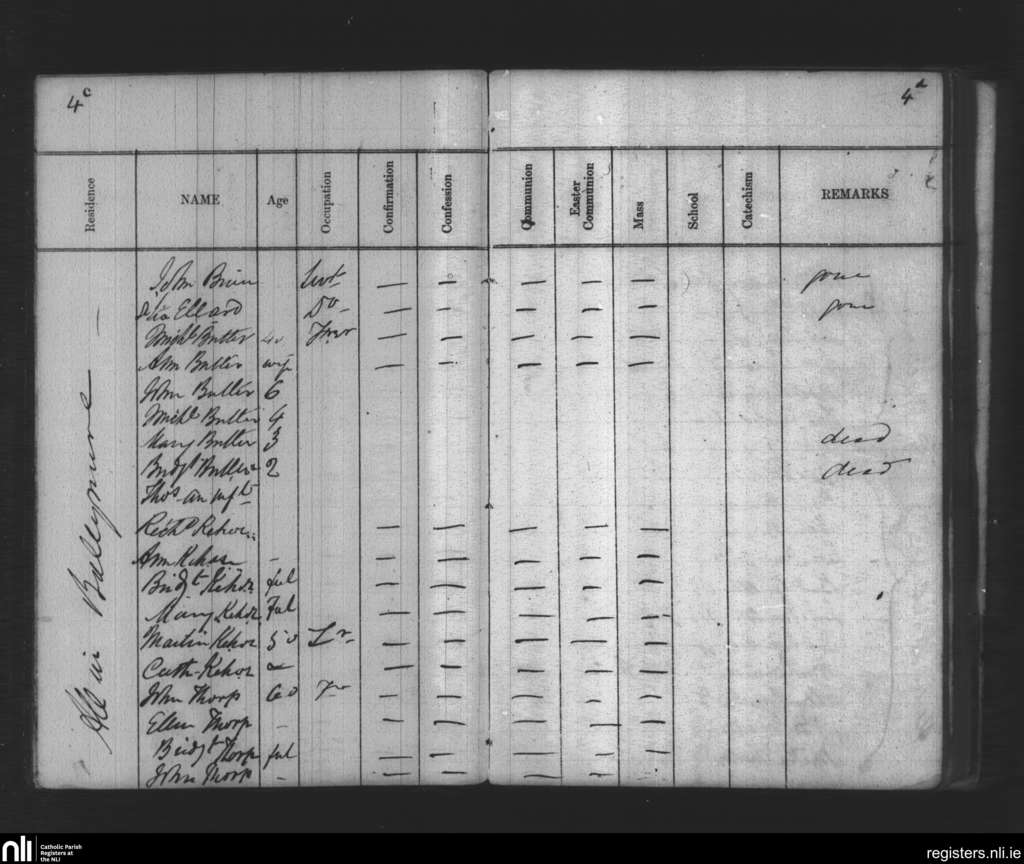 4c
4d
Residence NAME Age Occupation Confirmation Confession Communion Easter Communion Mass School Catechism REMARKS
All in
John — — — — — gone
Ellard Do — — — — — gone
Michl Butler 40 — — — — —
Ann Butler — — — — —
John Butler 6
Michl Butler 4
Mary Butler 3 dead
Bridgt Butler 2 dead
Thos an inft
Richd Kehoe — — — — —
Ann Kehoe - — — — — —
Bridgt Kehoe ful — — — — —
Mary Kehoe Ful — — — — —
Martin Kehoe 50 Lr — — — — —
Cath Kehoe — — — — —
John Thorp 60 — — — — —
Ellen Thorp - — — — — —
Bridgt Thorp ful — — — — —
John Thorp - — — — — —
nli Catholic Parish
Registers at
the NLI
registers.nli.ie